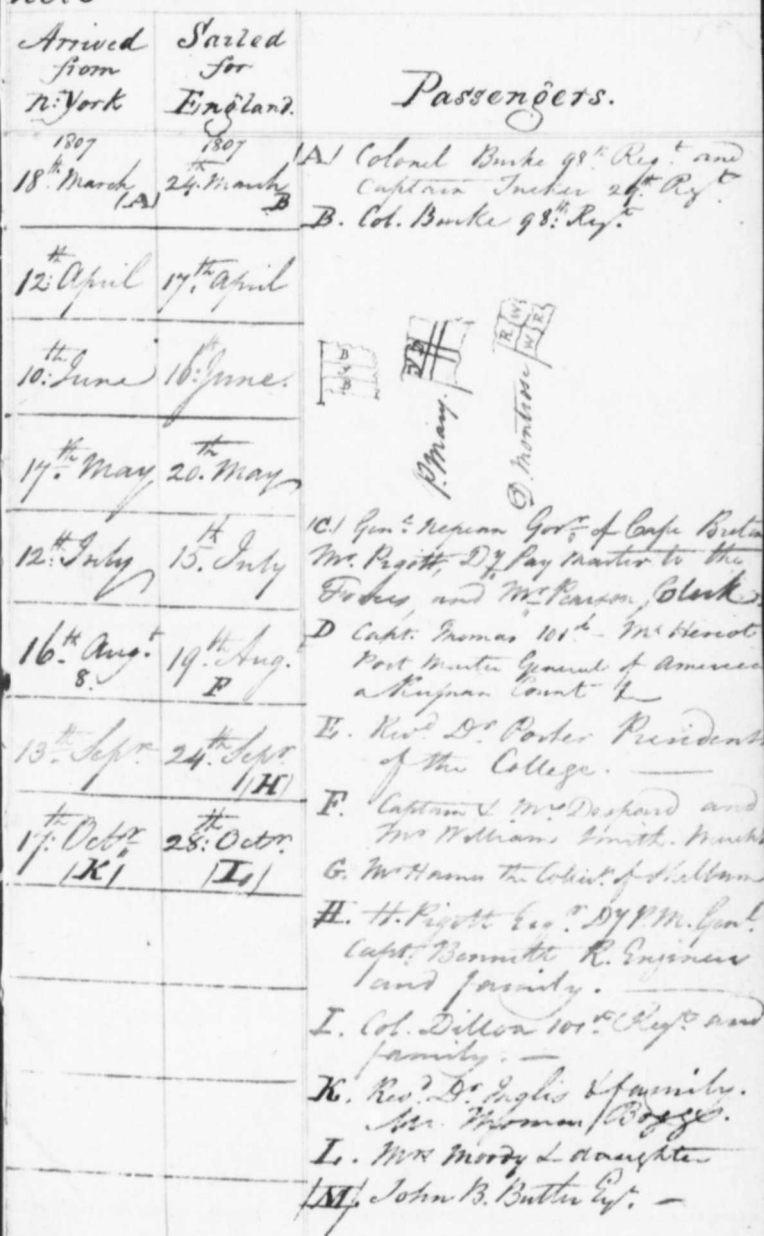 Arrived
from
N: York
Sailed
for
England.
Passengers.
1807
18th March
(A)
1807
24th March
B
(A) Colonel Burke 98th Regt. and
Captain Tucker 29th Regt.
B. Col. Burke 98th Regt.
12th April
17th April
10th June
16th June.
B
B
P. Mary.
R W
W R
D. Montrose
17th May
20th May
12th July
15th July
(C) Genl. Nepean Govr. of Cape Breton
Mr. Pigott, Dy Pay Master to the
Forces, and Mr Pearson, Clerk
16th Augt.
8.
19th Aug.
F
D Capt. Thomas 101st - Mr Heriot
Post Master General of America
a Count &
13th Sepr.
24th Sepr.
(H)
E. Revd. Dr. Porter President
of the College.
F. Captain & Mrs Despard and
Mr William Smith.
17th Octr.
(K)
28th Octr.
(L)
G. Mr the of Shelburn
H. H. Pigott Esqr. Dy P.M. Genl.
Capt. Bennett R. Engineer
and family.
I. Col. Dillon 101st Regt. and
family.
K. Revd. Dr. Inglis & family.
Mr. Thomas Boggs.
L. Mrs Moody & daughter
(M) John B. Butler Esqr.